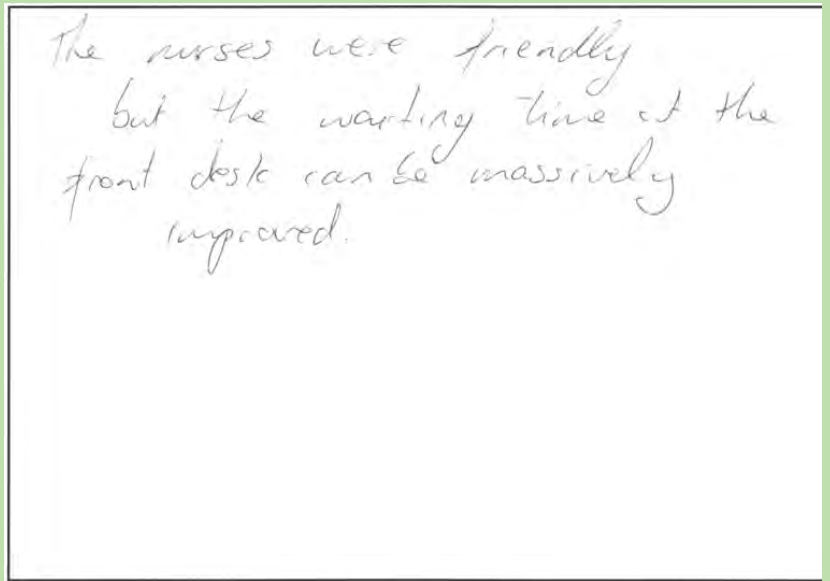 The nurses were friendly
but the waiting time at the
front desk can be massively
improved.